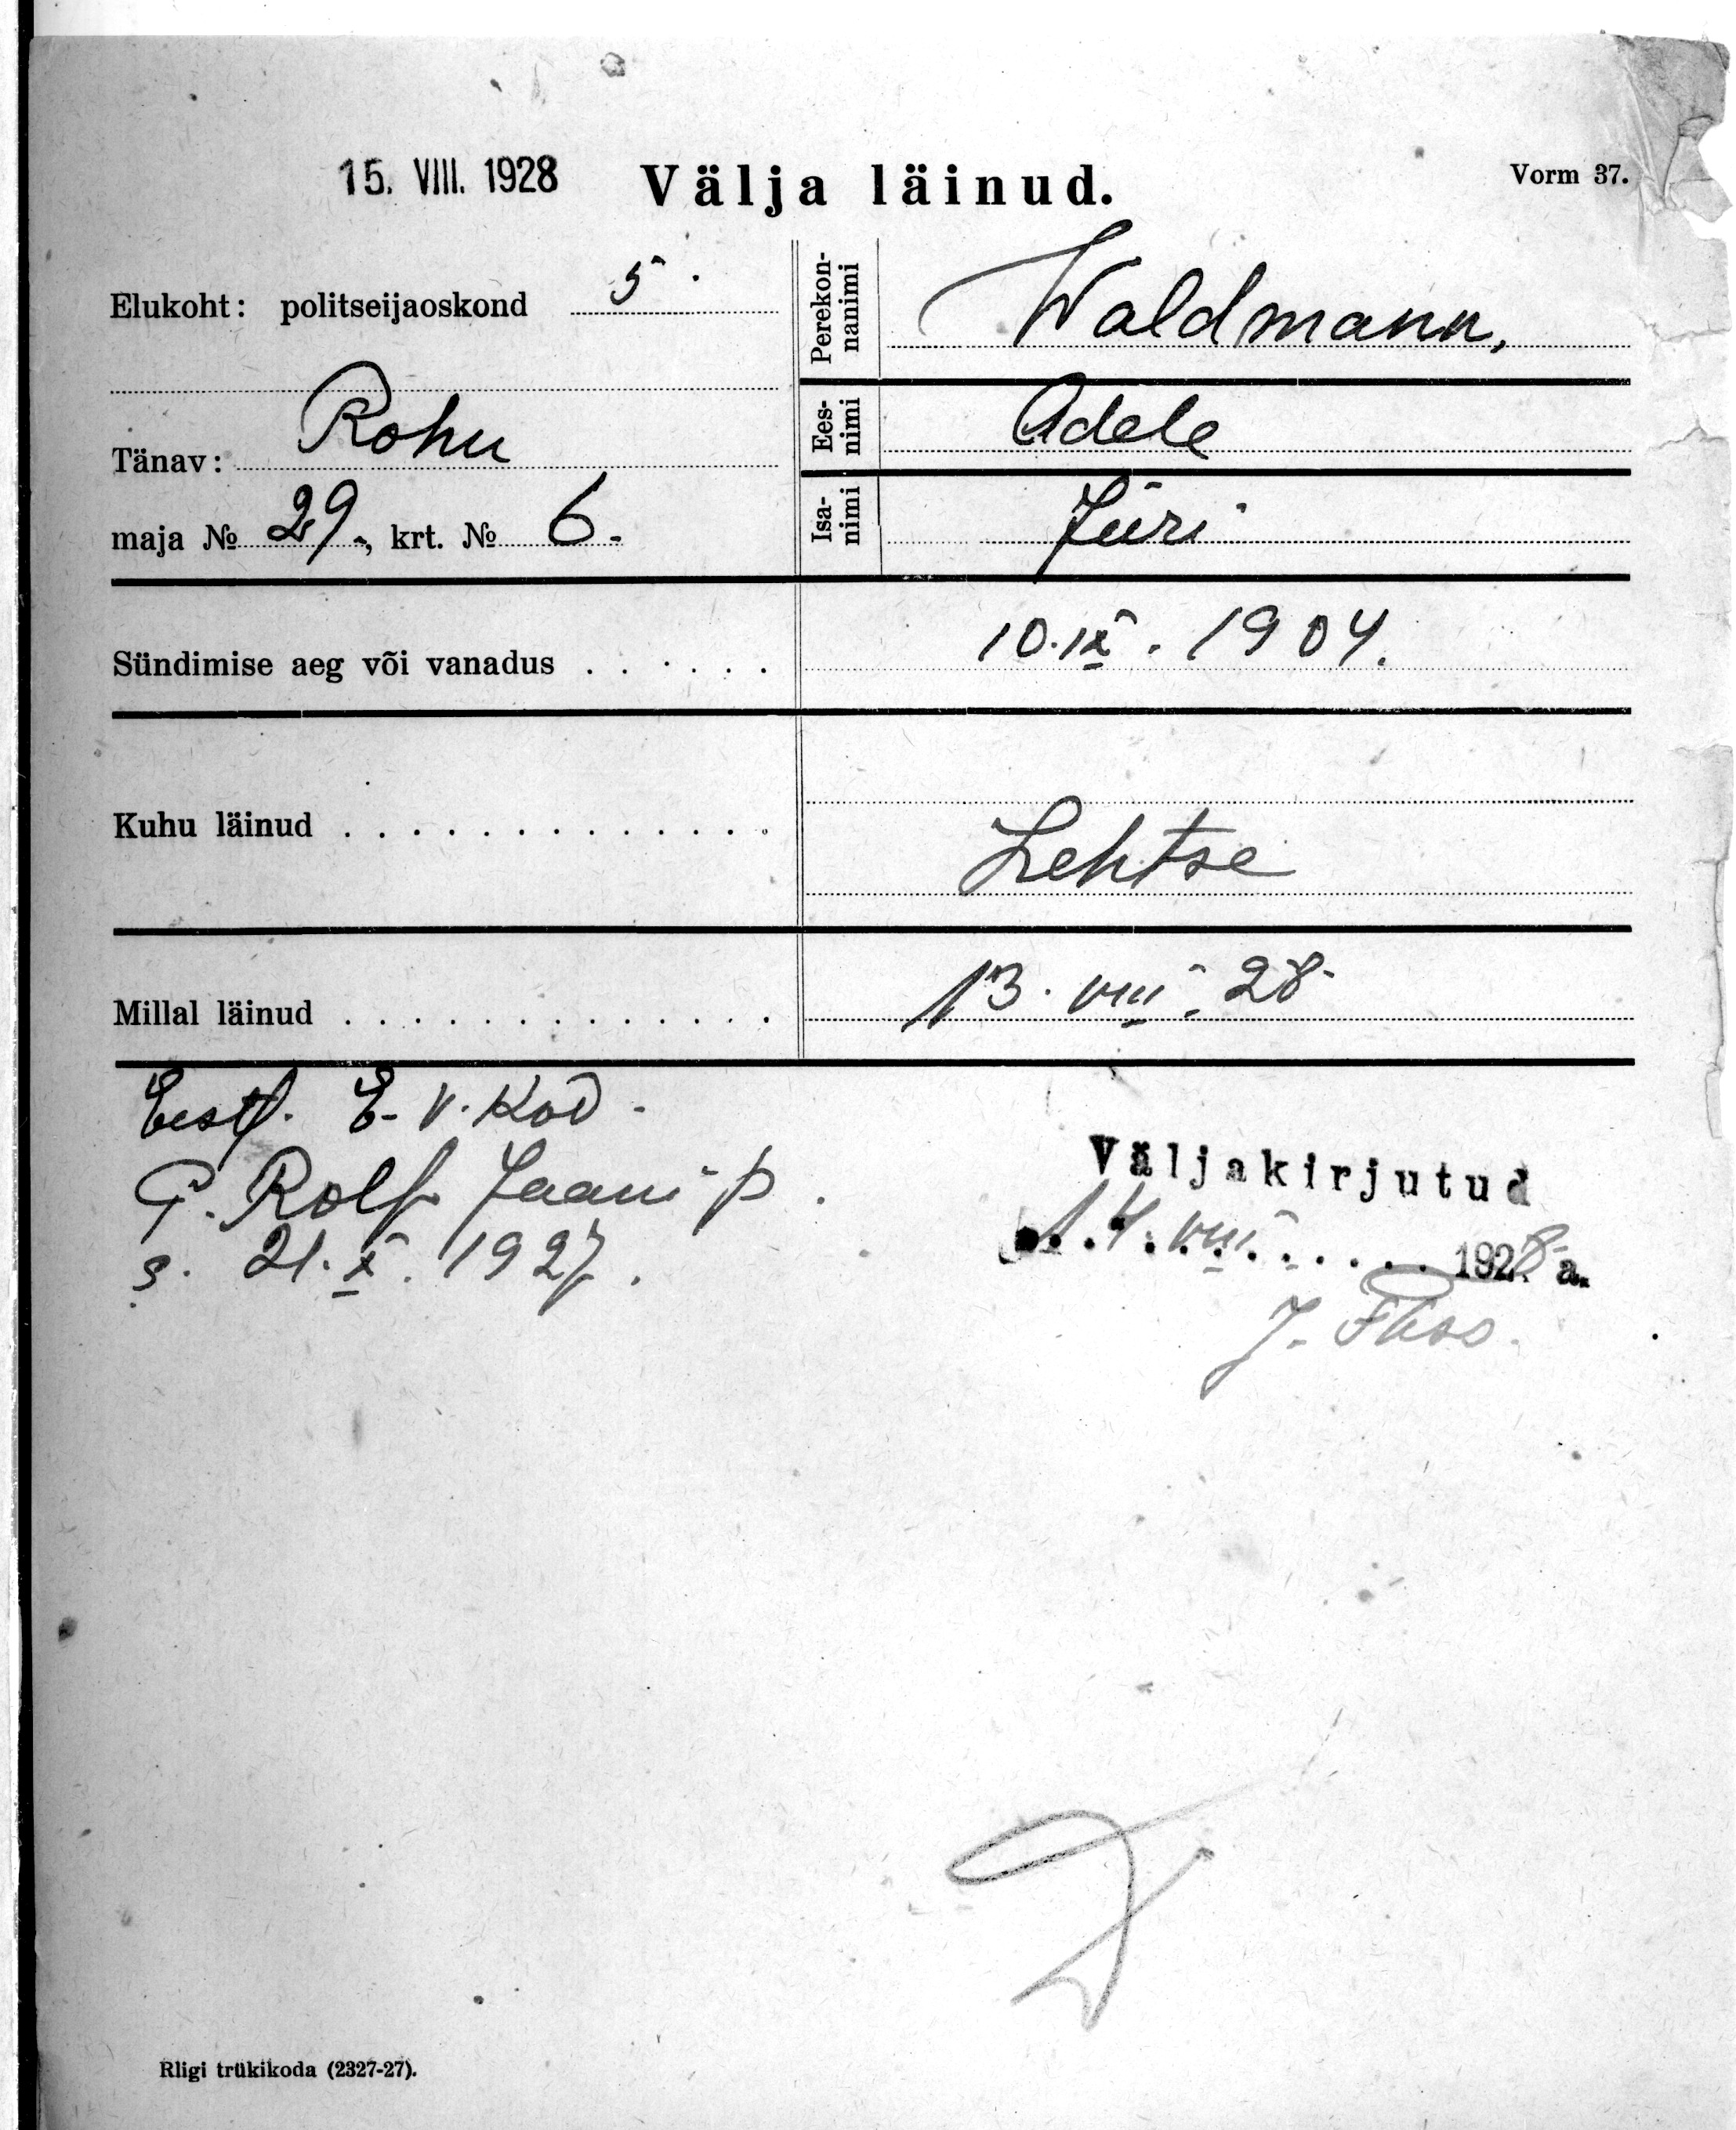 15. VIII. 1928
Välja läinud.
Vorm 37.
Elukoht: politseijaoskond 5.
Tänav: Rohu
maja № 29, krt. № 6.
Perekon-
nanimi
Waldmann,
Ees-
nimi
Adele
Isa-
nimi
Jüri
Sündimise aeg või vanadus . . . . . . 10.IX. 1904.
Kuhu läinud . . . . . . . . . . . . . Lehtse
Millal läinud . . . . . . . . . . . . . 13. VIII. 28
Eestl. E. V. Kod.
P. Rolf Jaani p.
s. 21. X. 1927.
Väljakirjutud
14. VIII. 1928 a.
J.
Riigi trükikoda (2327-27).